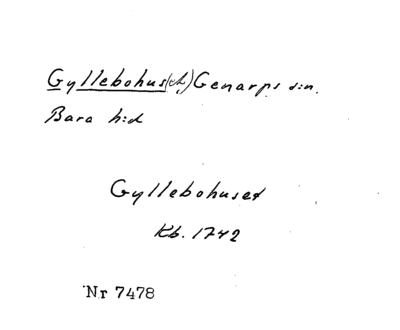 Gyllebohus(et) Genarps s:n.
Bara h:d
Gyllebohuset
Kb. 1742
Nr 7478